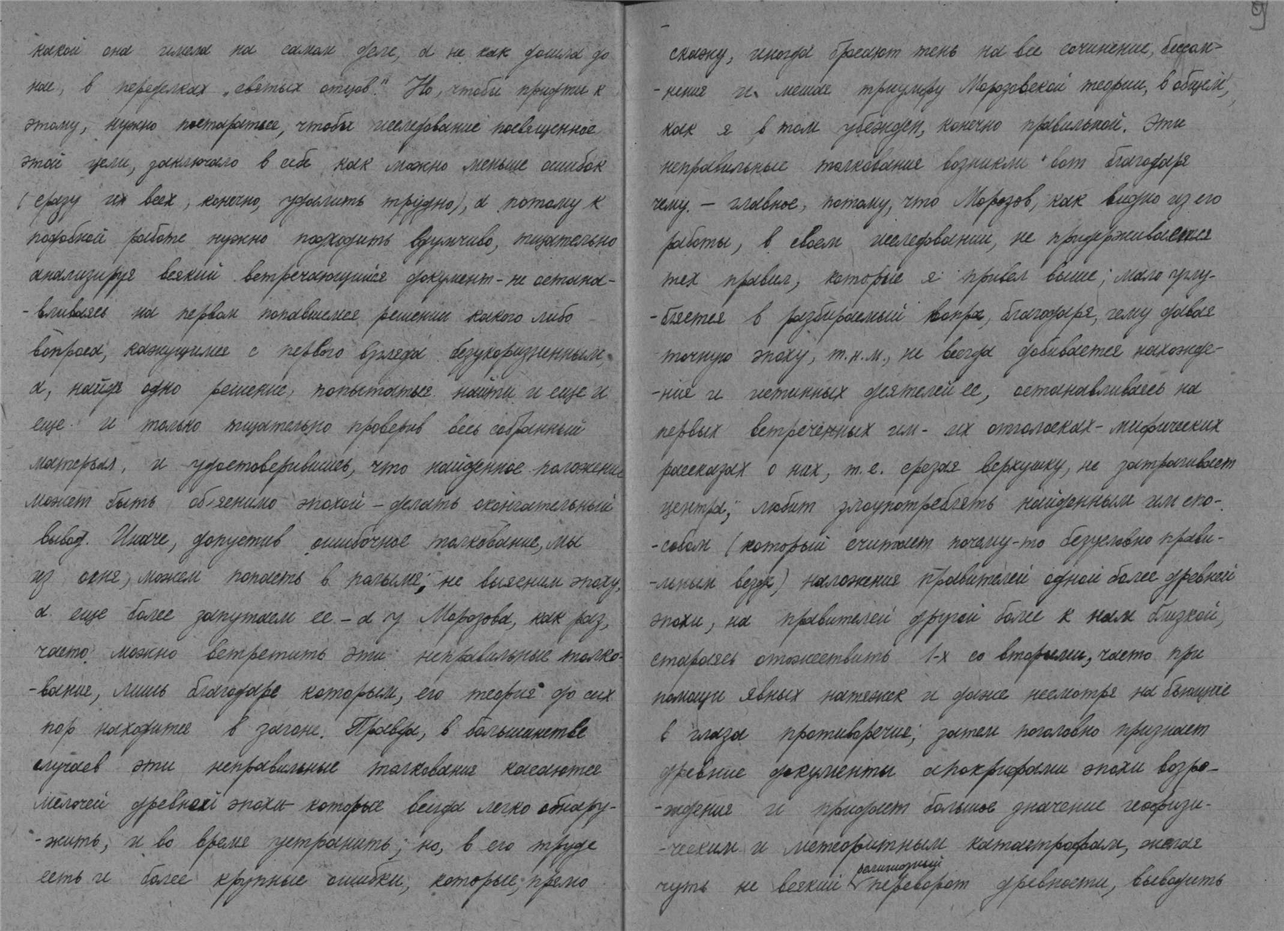 какой она имела на самом деле, а не как дошла до
нас, в переделках „святых отцов." Но, чтобы придти к
этому, нужно постараться, чтобы исследование посвященное
этой цели, заключало в себе как можно меньше ошибок
(сразу их всех, конечно, удалить трудно), а потому к
подобной работе нужно подходить вдумчиво, тщательно
анализируя всякий встречающийся документ - не остана-
-вливаясь на первом попавшемся решении какого либо
вопроса, кажущимся с первого взгляда безукоризненным,
а, найдя одно решение, попытаться найти и еще и
еще и только тщательно проверив весь собранный
матерьял, и удостоверившись, что найденное положение
может быть об'яснимо эпохой - делать окончательный
вывод. Иначе, допустив ошибочное толкование, мы
из огня, можем попасть в полымя; не выясним эпоху,
а еще более запутаем ее - а у Морозова, как раз,
часто можно встретить эти неправильные толко-
-вание, лишь благодаря которым, его теория до сих
пор находится в загоне. Правда, в большинстве
случаев эти неправильные толкования касаются
мелочей древней эпохи которые всегда легко обнару-
-жить, и во время устранить; но, в его труде
есть и более крупные ошибки, которые, прямо
9
скажу, иногда бросают тень на все сочинение,
-нения и мешая триумфу Морозовской теории, в общем,
как я в том убежден, конечно правильной. Эти
неправильные толкование возникли вот благодаря
чему. - главное, потому, что Морозов, как видно из его
работы, в своем исследовании, не придерживается
тех правил, которые я привел выше; мало углу-
-бляется в разбираемый вопрос, благодаря, чему давая
точную эпоху, т.н.м., не всегда добивается нахожде-
-ния и истинных деятелей ее, останавливаясь на
первых встреченных им - их отголосках - мифических
рассказах о них, т.е. срезая верхушку, не затрагивает
центра; любит злоупотреблять найденным им спо-
-собом (который считает почему-то безусловно прави-
-льным везде) наложения правителей одной более древней
эпохи, на правителей другой более к нам близкой,
стараясь отожествить 1-х со вторыми, часто при
помощи явных натяжек и даже несмотря на бьющие
в глаза противоречия; затем поголовно признает
древние документы апокрифами эпохи возро-
-ждения и придает большое значение геофизи-
-ческим и метеоритным катастрофам, желая
чуть не всякий религиозный переворот древности, выводить